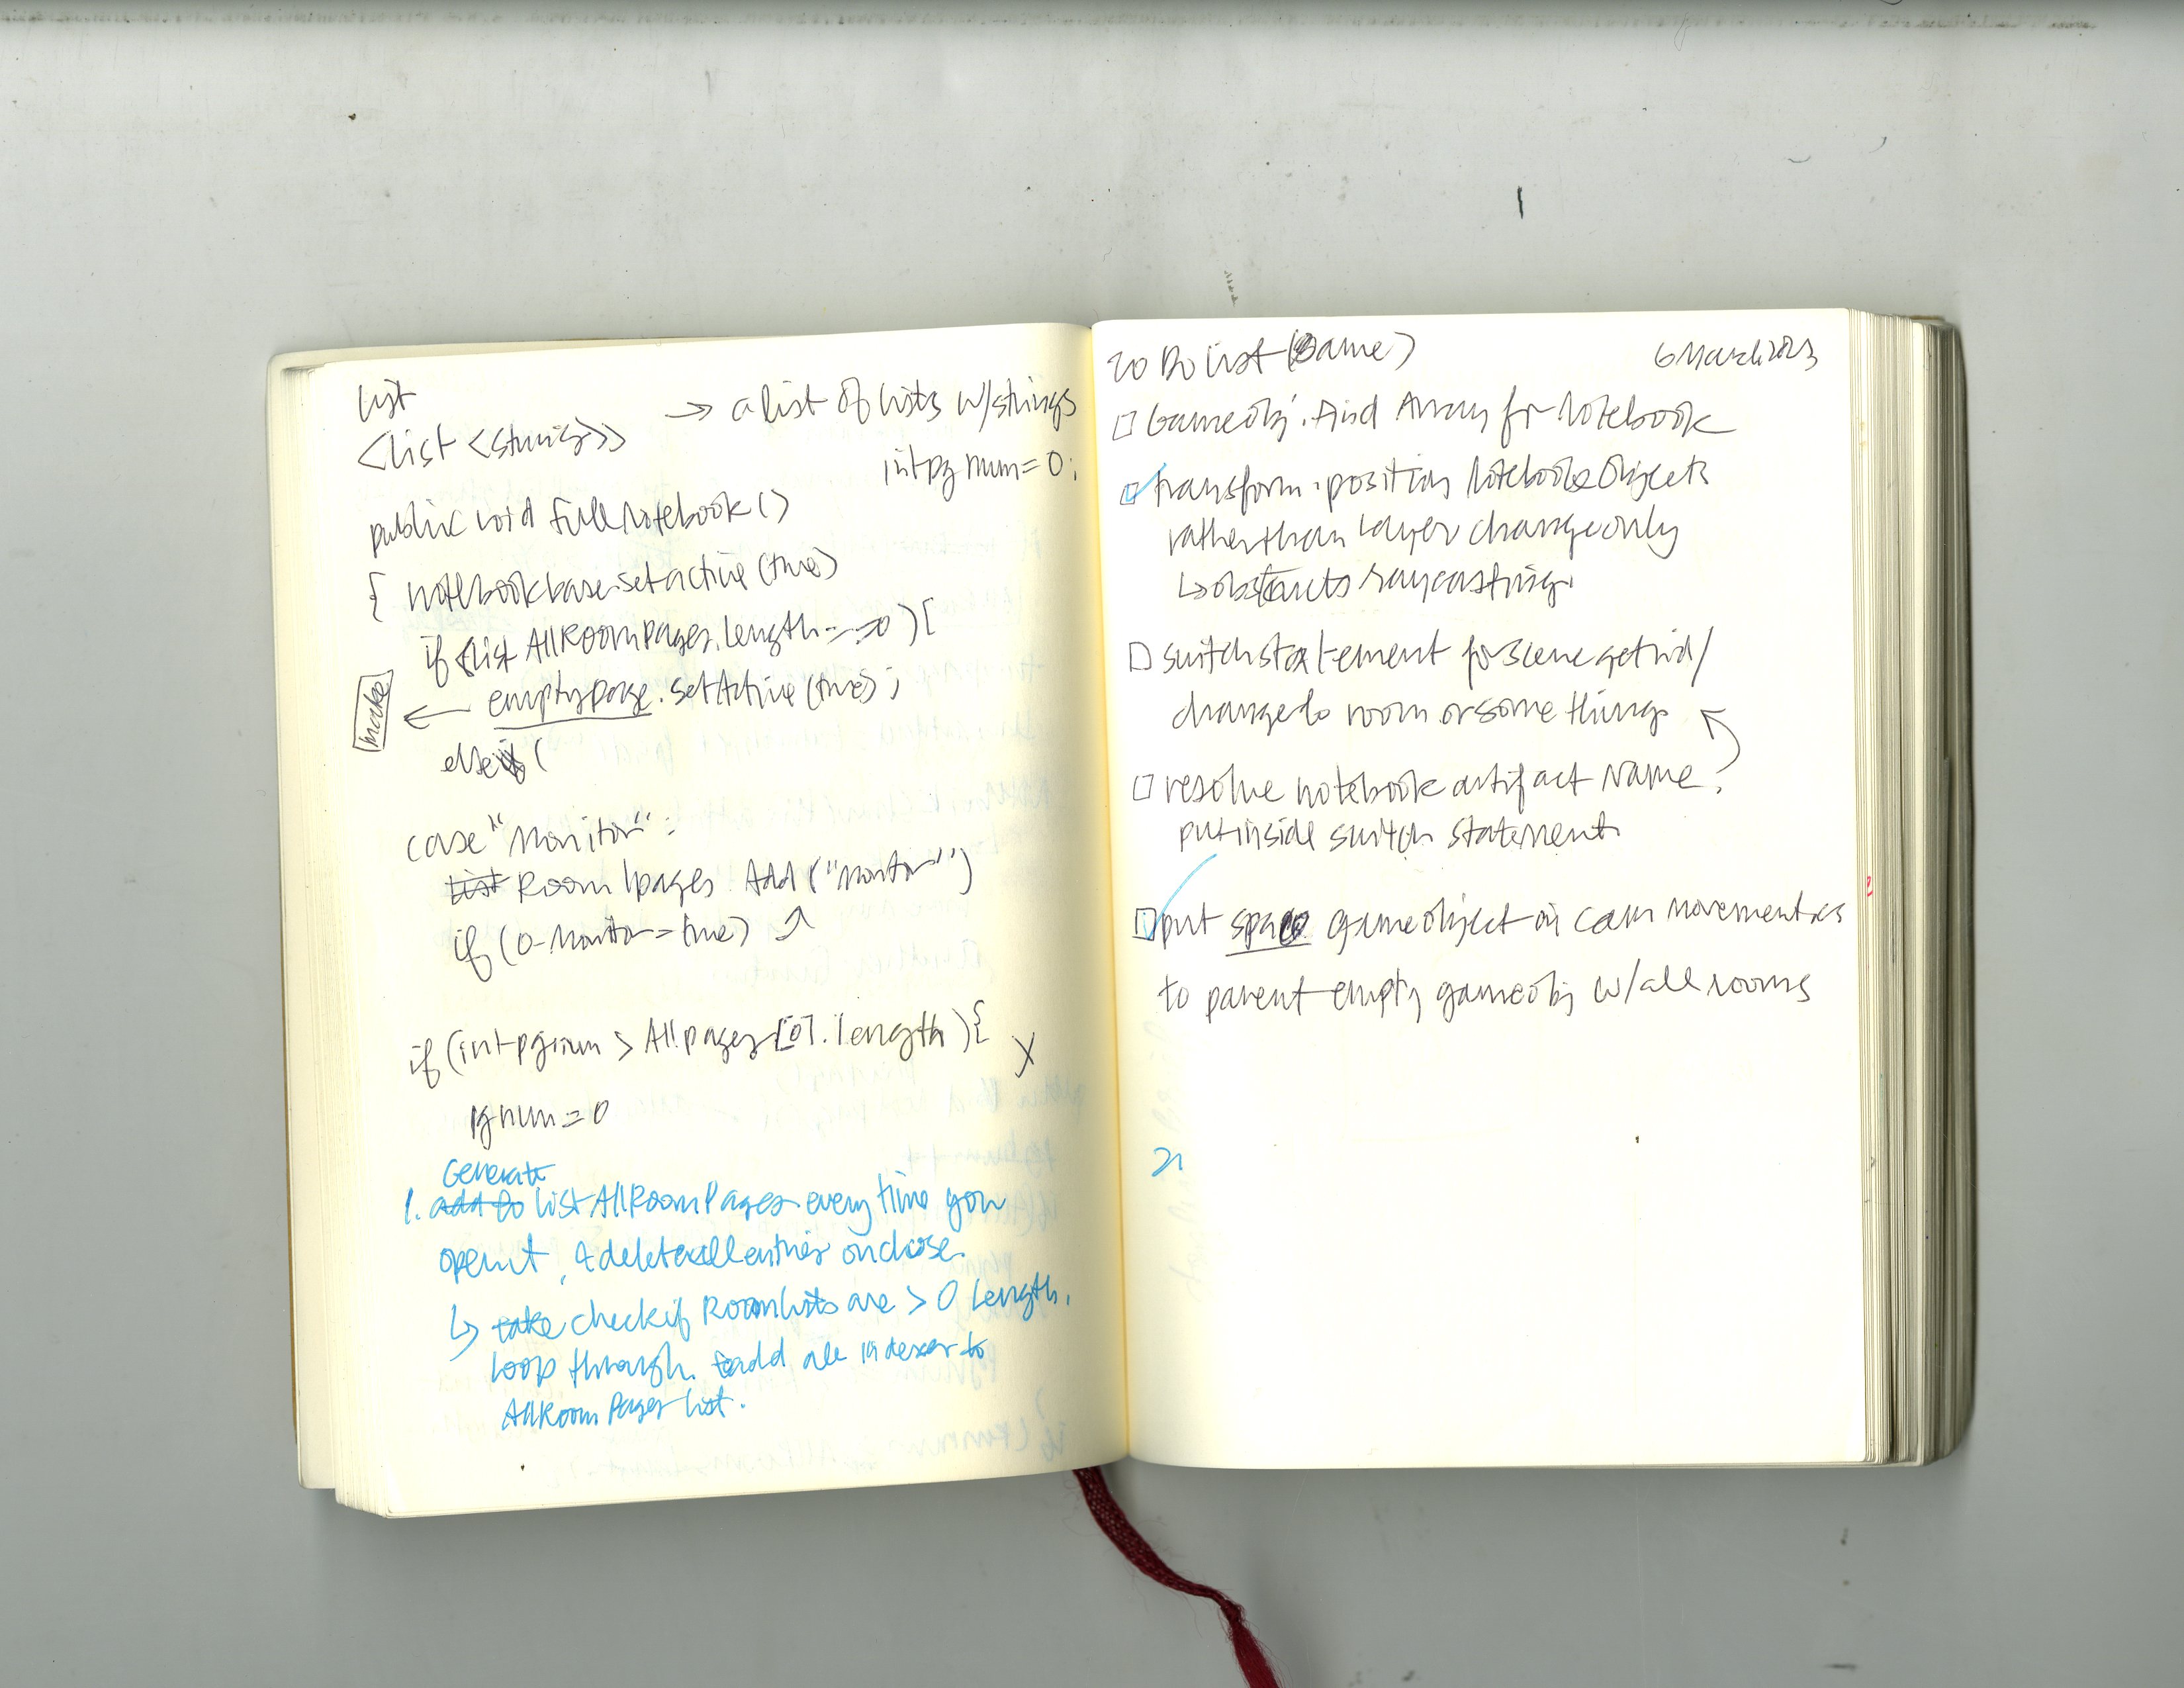 list
<list <string>>
→ a list of lists w/strings
int pg num = 0;
public void fullnotebook()
{ notebookbase.setactive (true)
if (list AllRoomPages.length == 0) {
make ← emptypage. setActive (true);
else if (
case "Monitor":
list Room 1 pages. Add ("Monitor")
if (o-Monitor = true) ↗
if (int pgnum > All pages [0]. length) { X
pg num = 0
Generate
1. add to list AllRoomPages every time you
open it, & delete all entries on close.
↳ take check if Roomlists are > 0 length,
loop through. to add all indexes to
AllRoom Pages list.
To Do list (Game)
6 March 2023
□ Gameobj. Find Array for Notebook
☑ transform.position Notebook Objects
rather than layer change only
↳ obstructs raycasting.
□ switch statement for scene get rid/
change to room or some thing
□ resolve notebook artifact name.
put inside switch statement
☑ put space gameobject in cam movement.cs
to parent empty gameobj w/all rooms